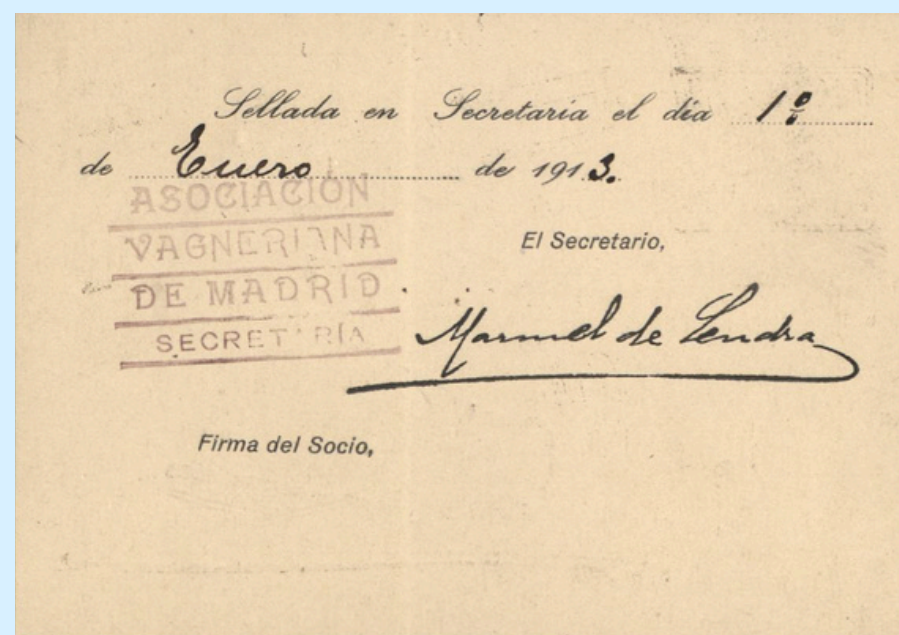 Sellada en Secretaría el día 1º
de Enero de 1913.
ASOCIACIÓN
VAGNERIANA
DE MADRID
SECRETARÍA
El Secretario,
Manuel de Cendra
Firma del Socio,